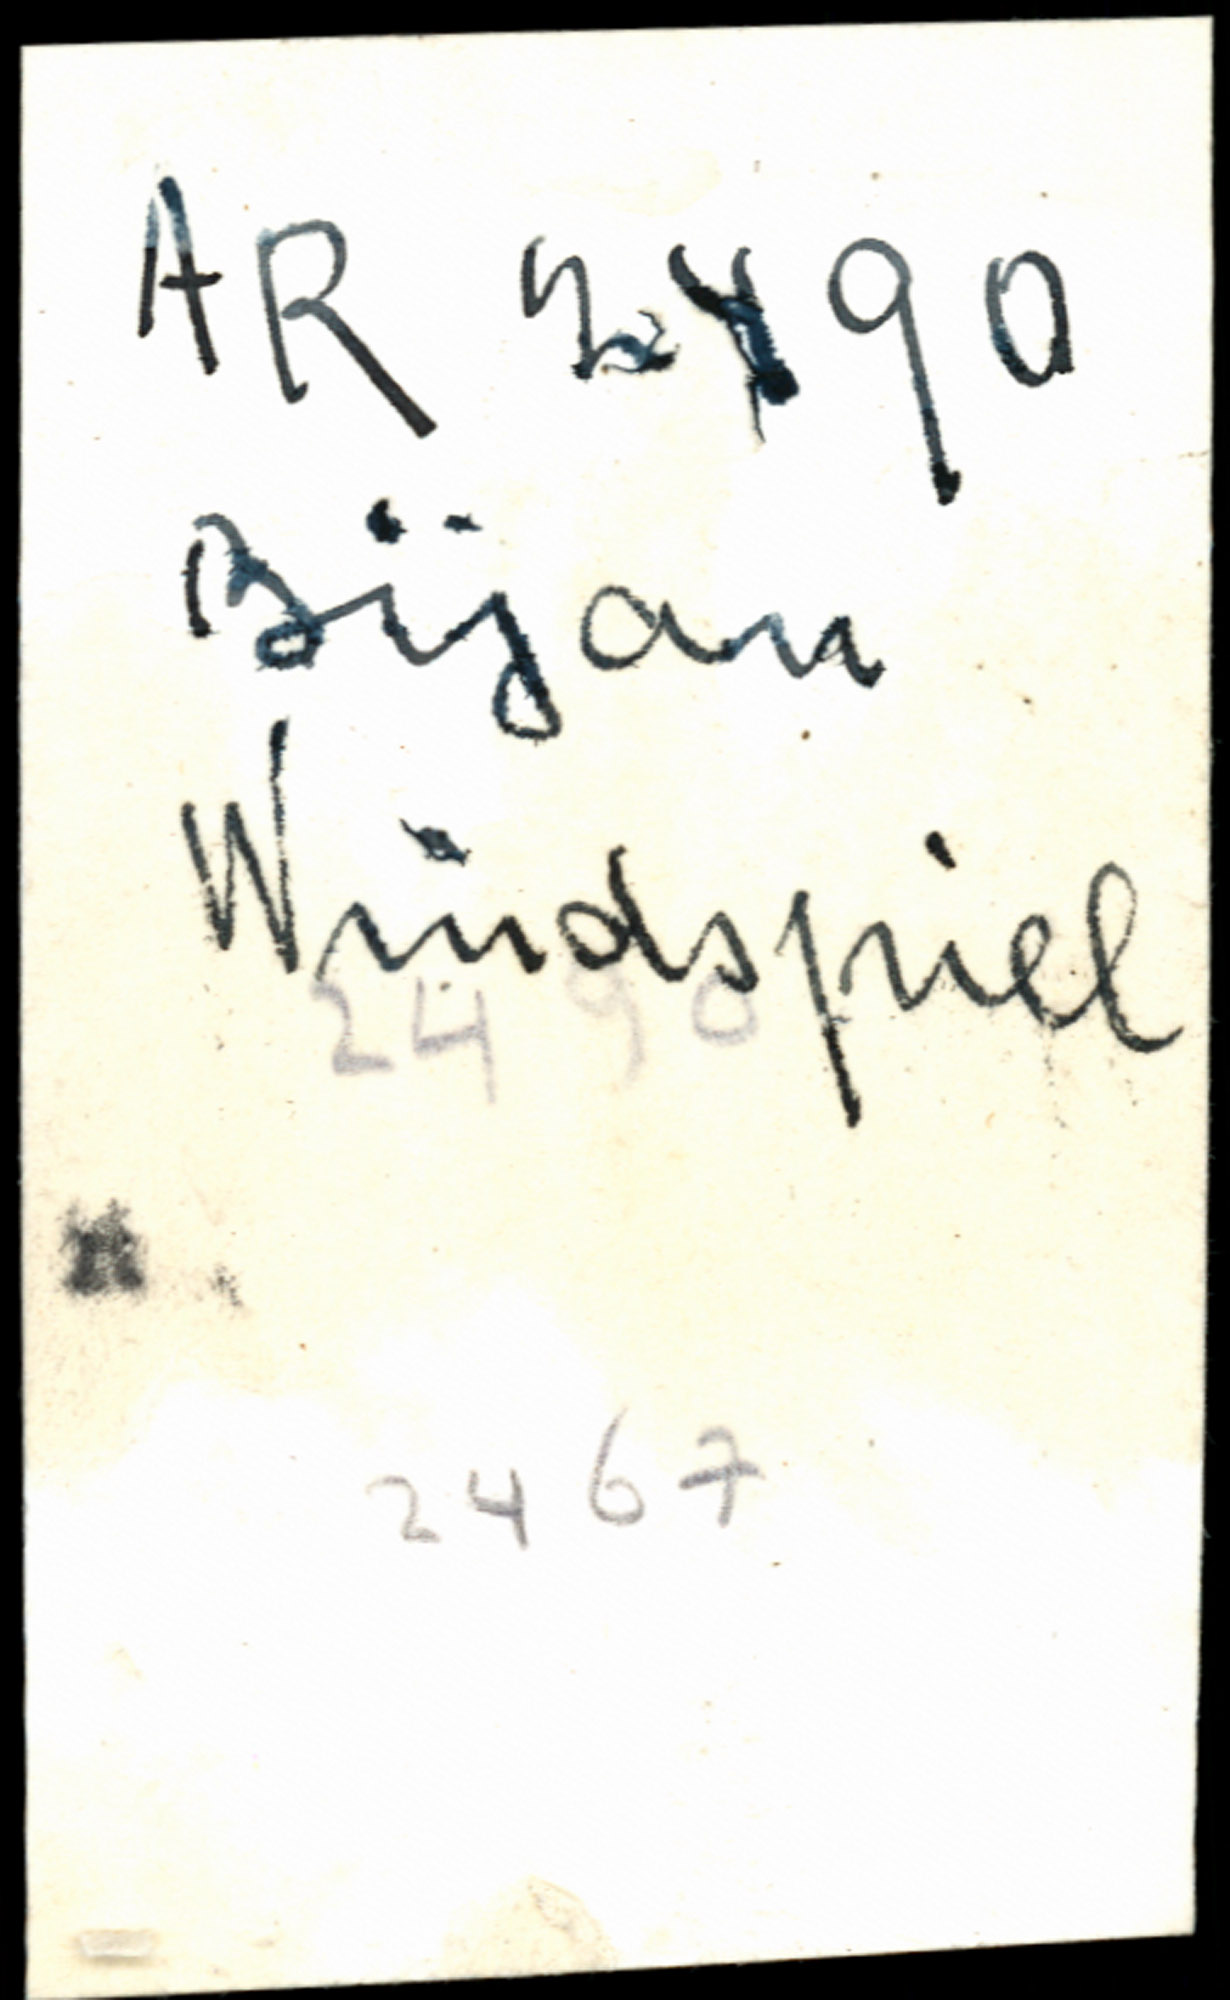 AR 2490
Bijan
Windspiel
2490
2467